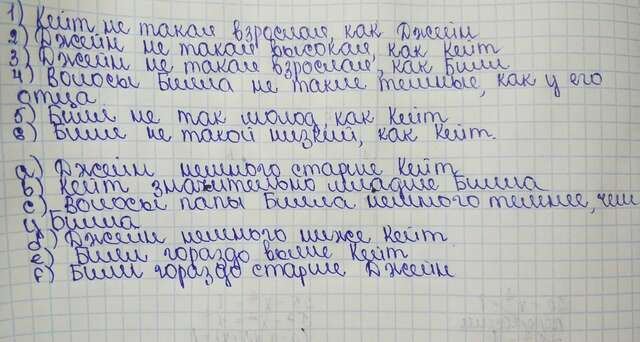 1) Кейт не такая взрослая, как Джейн
2) Джейн не такая высокая, как Кейт
3) Джейн не такая взрослая, как Билл
4) Волосы Билла не такие темные, как у его
отца
5) Билл не так молод, как Кейт
6) Билл не такой низкий, как Кейт.
a) Джейн немного старше Кейт
b) Кейт значительно младше Билла
c) Волосы папы Билла немного темнее, чем
у Билла
d) Джейн немного ниже Кейт
e) Билл гораздо выше Кейт
f) Билл гораздо старше Джейн